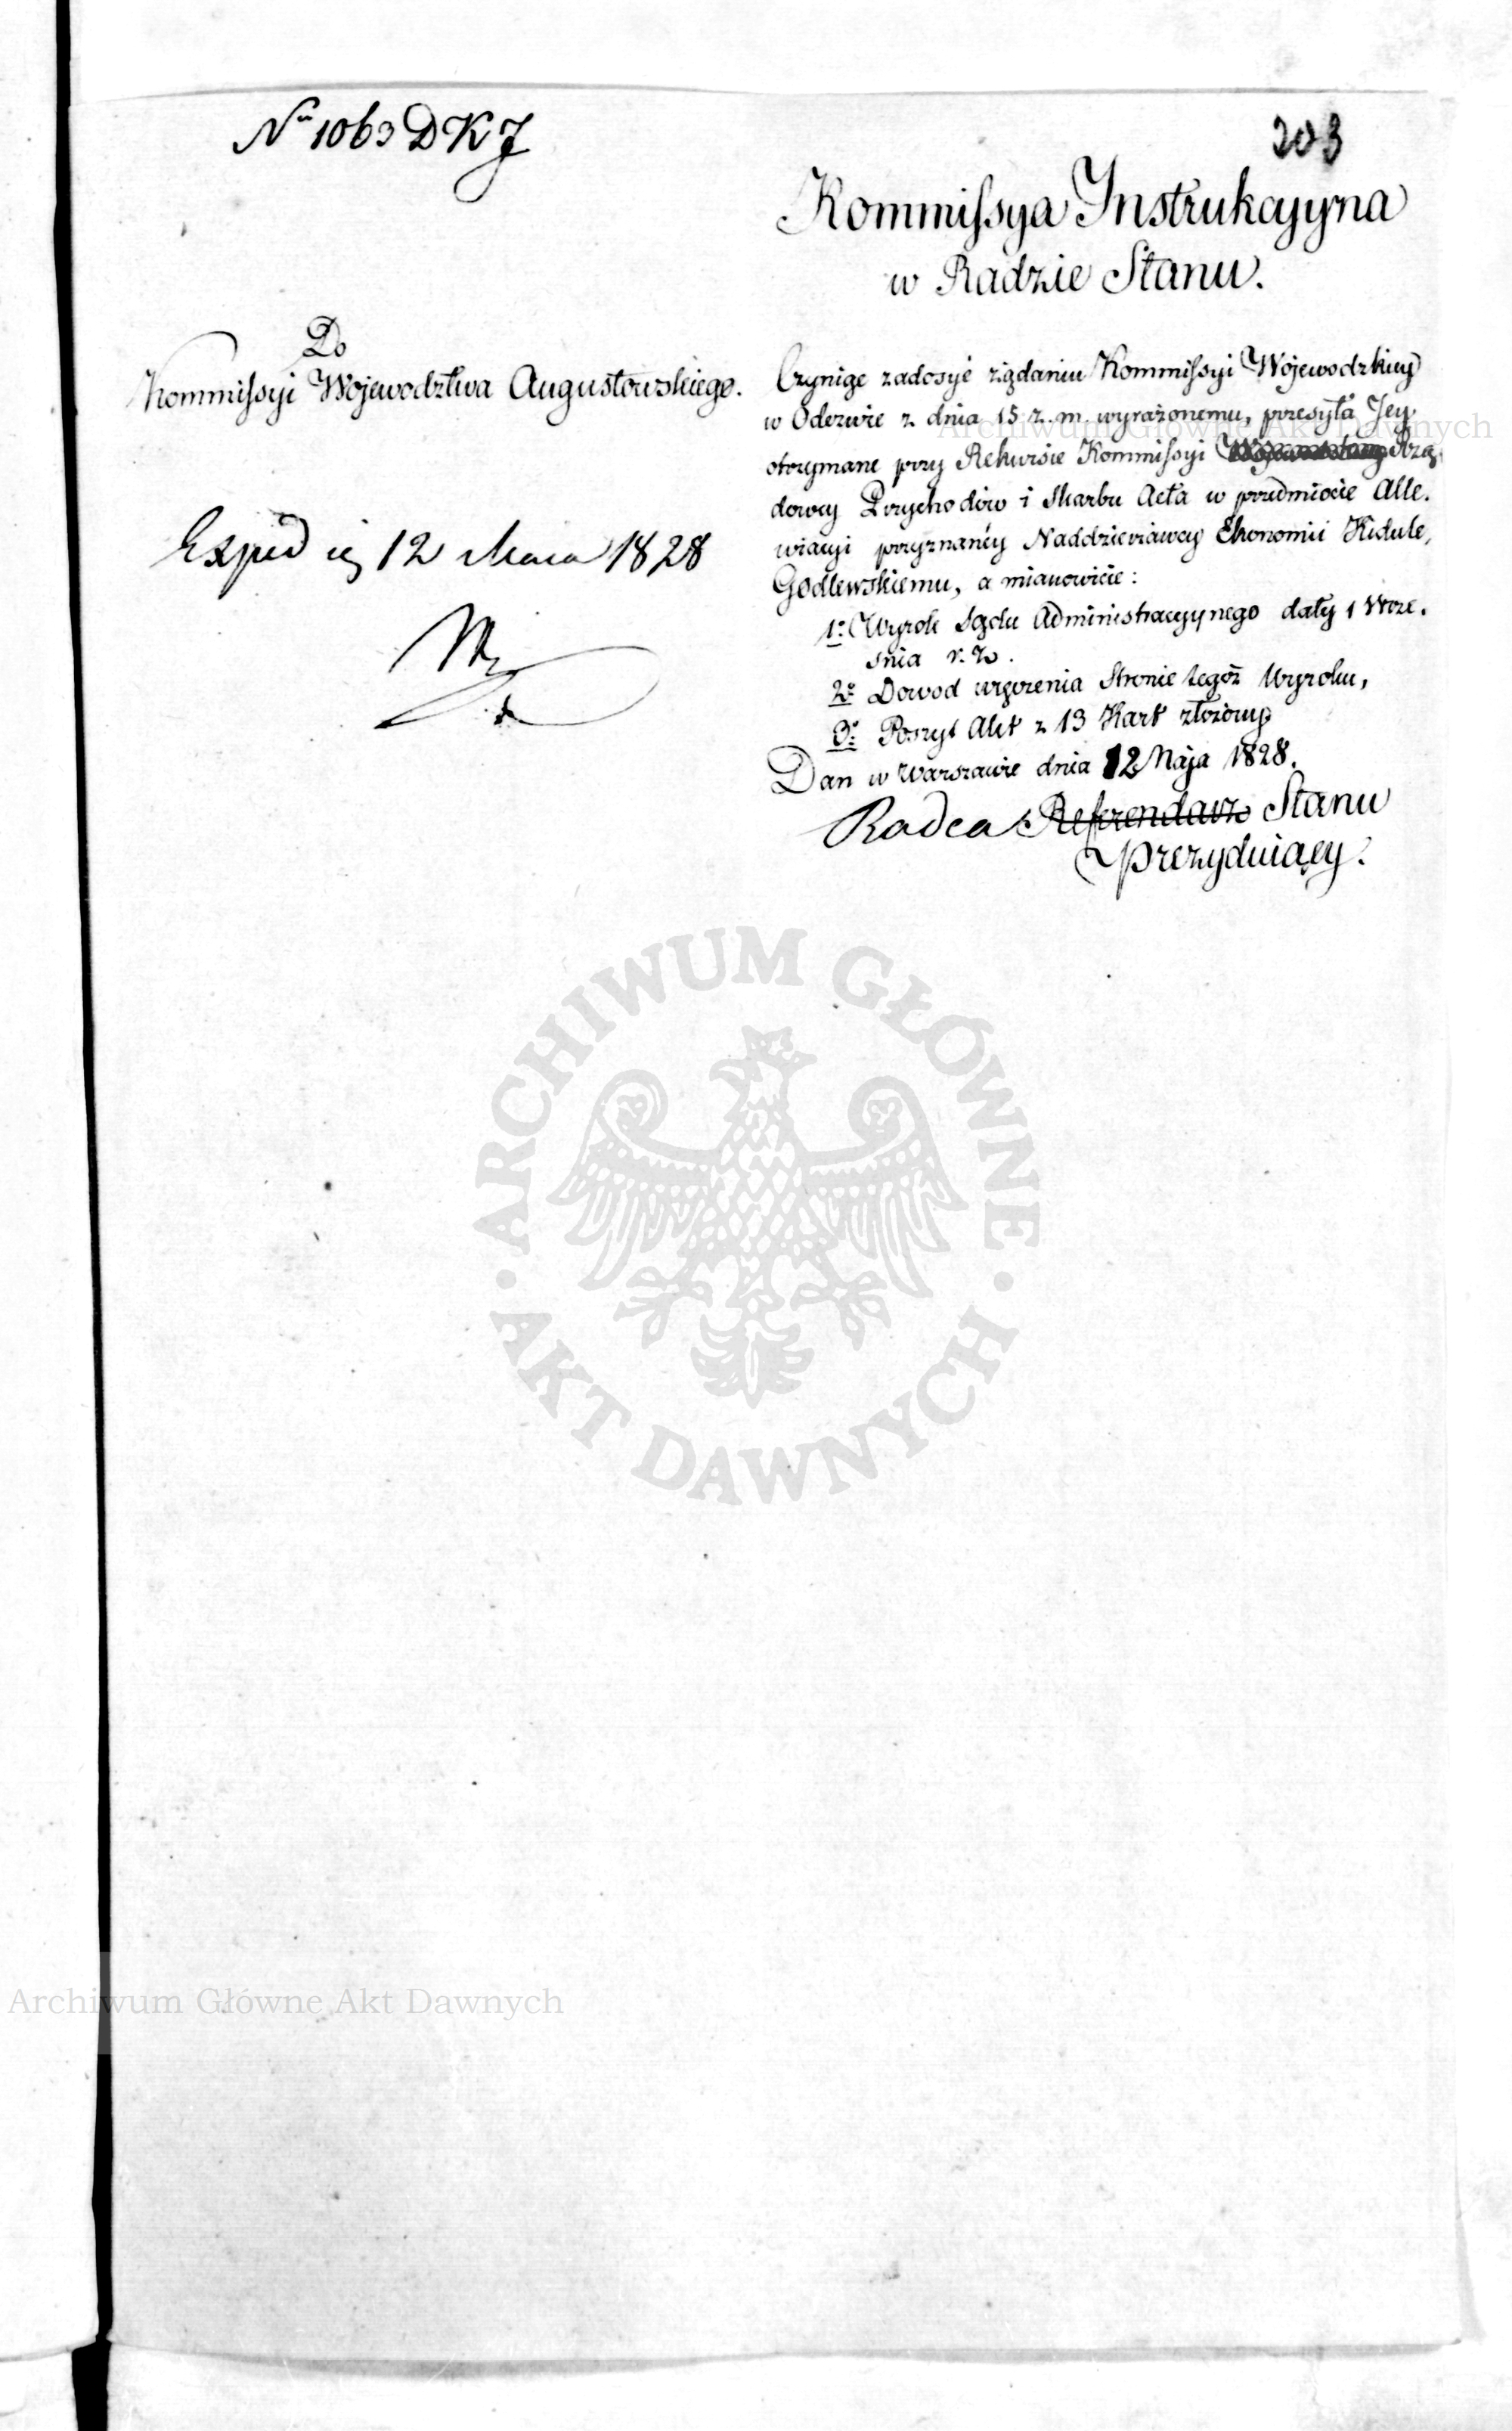 Nro 1063 DKJ
203
Kommissya Instrukcyyna
w Radzie Stanu.
Do
Kommissyi Wojewodztwa Augustowskiego.
Exped 12 Maia 1828
Czyniąc zadosyć żądaniu Kommissyi Wojewodzkiey
w Odezwie z dnia 15 z. m. wyrażonemu, przesyła Jey
otrzymane przy Rekursie Kommissyi Rzą
dowey Przychodów i Skarbu Acta w przedmiocie Alle.
wiacyi przyznaney Naddzierżawcy Ekonomii Kidule,
Godlewskiemu, a mianowicie:
1o Wyrok Sądu Administracyjnego daty 1 Wrze.
śnia r. z.
2o Dowod wręczenia Stronie tegoż Wyroku,
3o Poszyt Akt z 13 Kart złożony
Dan w Warszawie dnia 12 Maja 1828.
Radca Referendarz Stanu
Prezyduiący.
ARCHIWUM GŁÓWNE AKT DAWNYCH
Archiwum Główne Akt Dawnych
Archiwum Główne Akt Dawnych